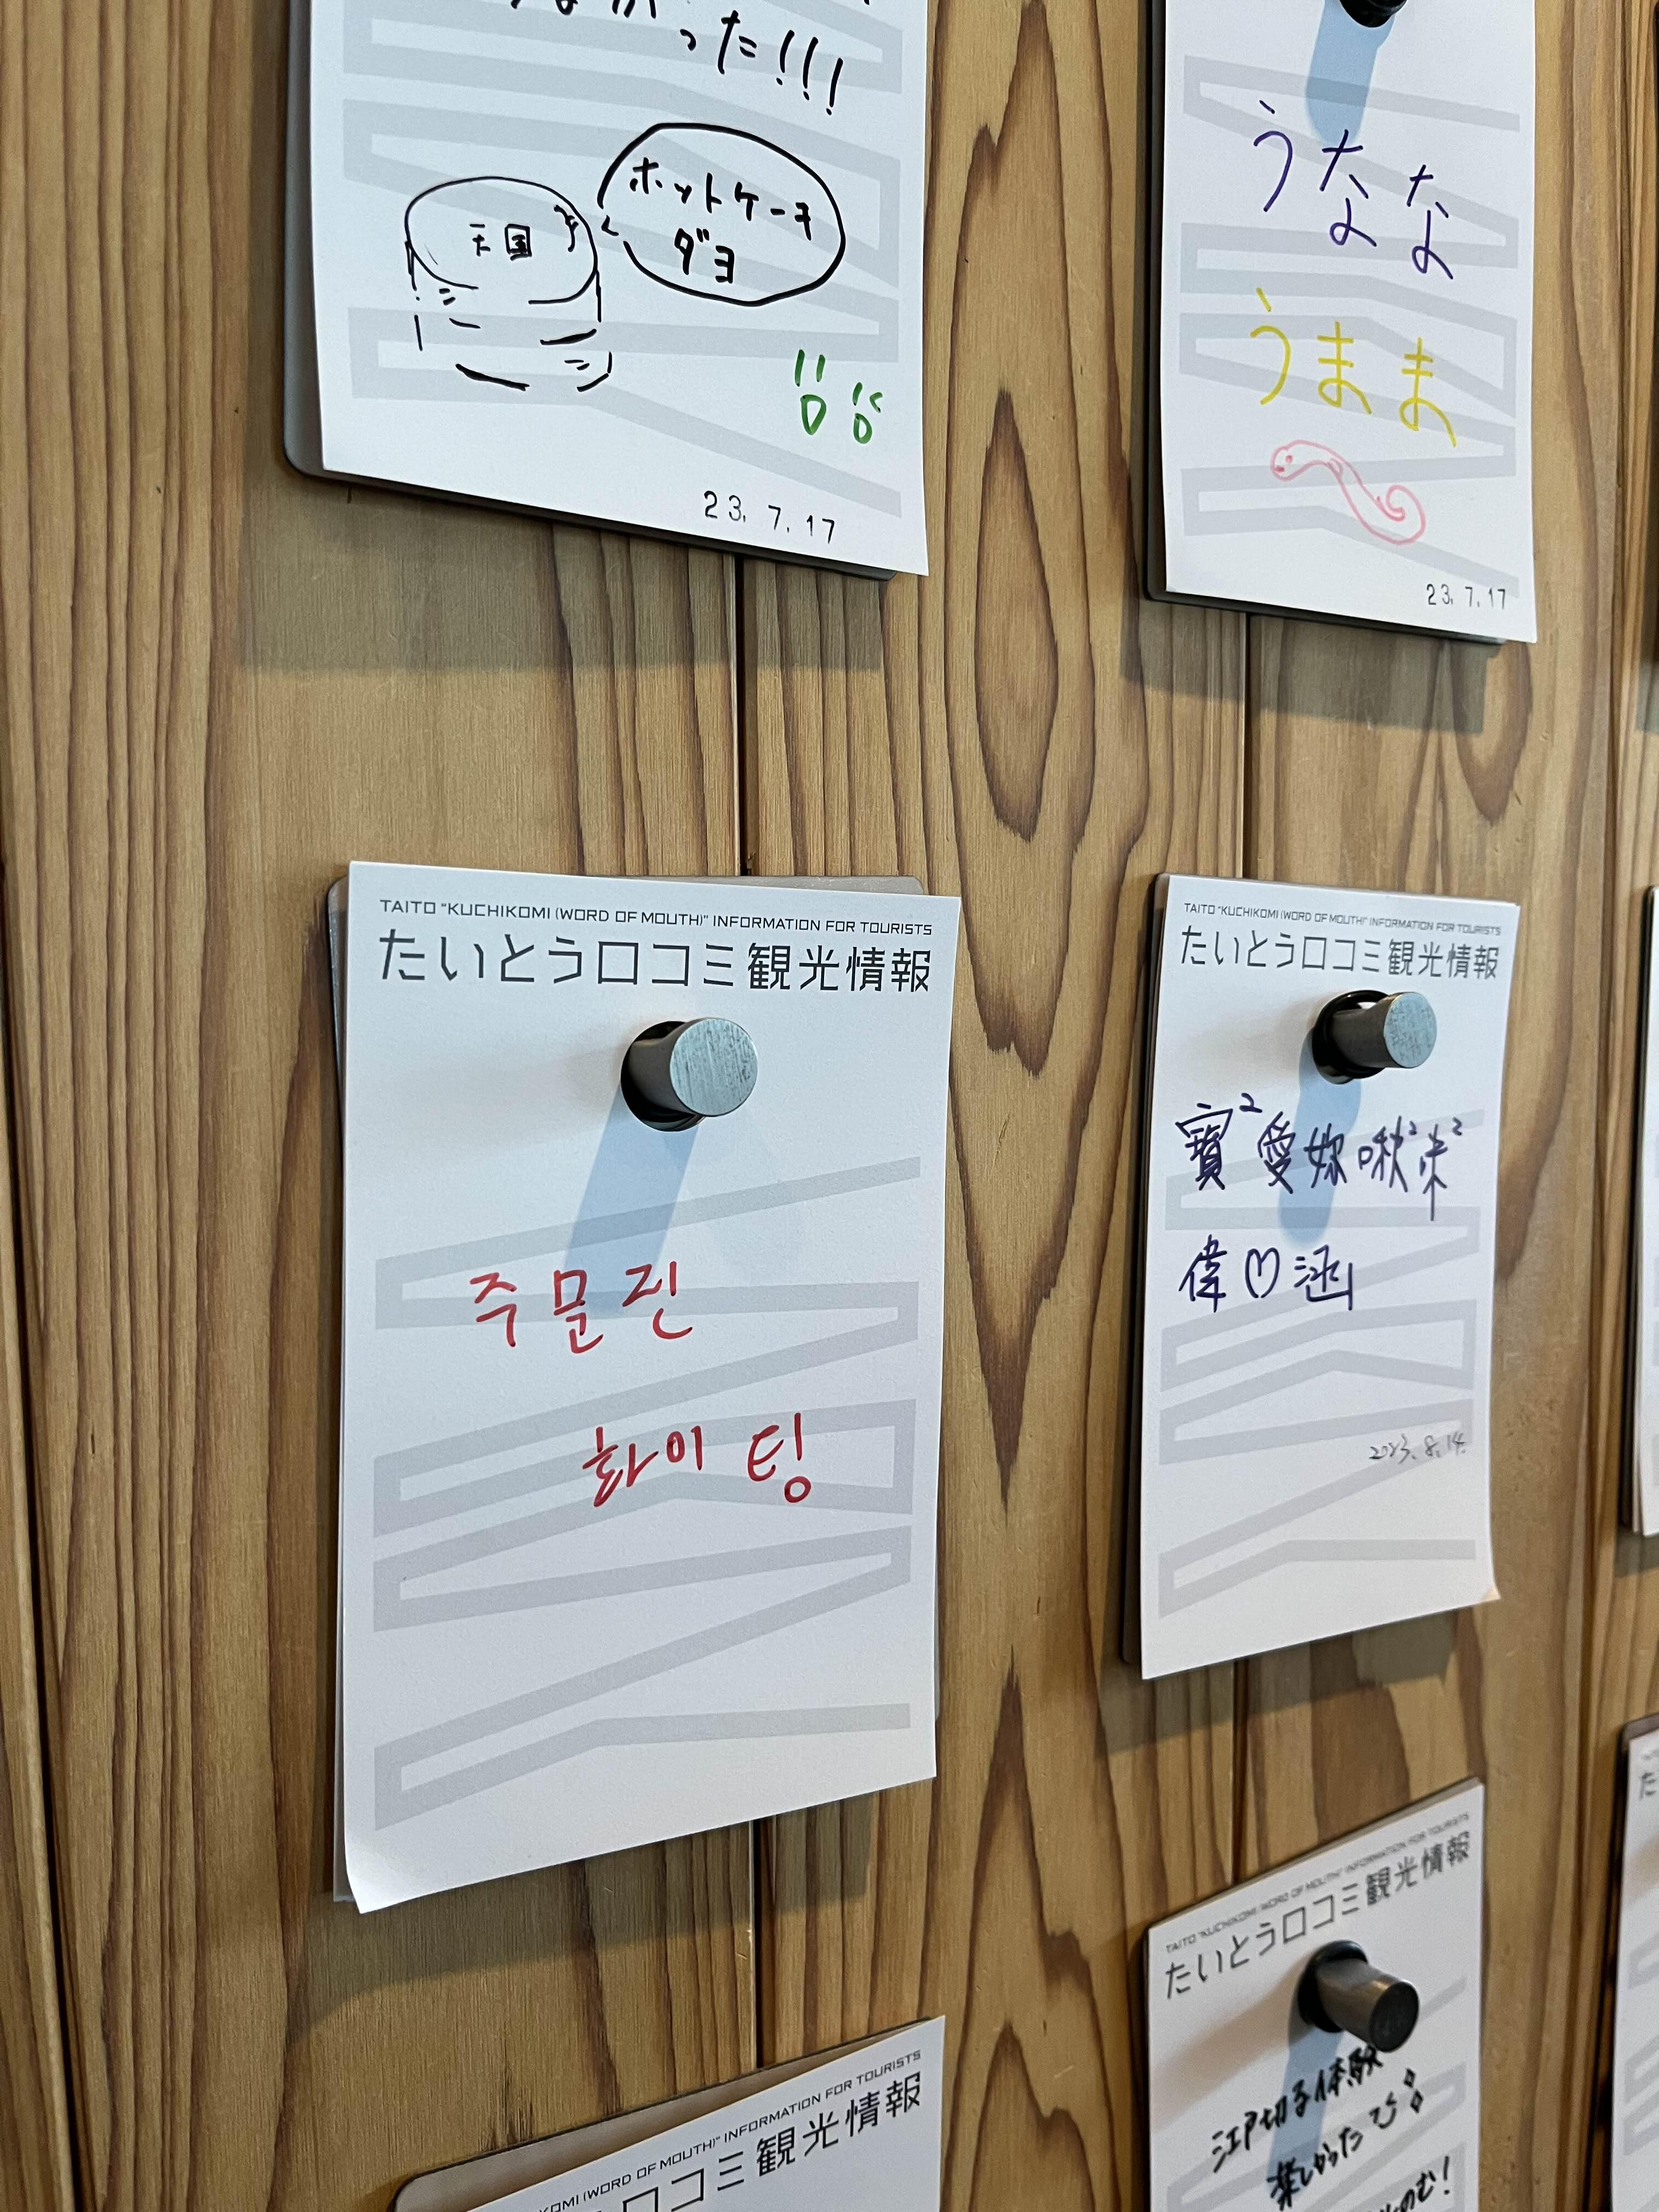 った!!!
天国
ホットケーキ
ダヨ
23. 7. 17
うなな
うまま
23. 7. 17
TAITO "KUCHIKOMI (WORD OF MOUTH)" INFORMATION FOR TOURISTS
たいとう口コミ観光情報
주문진
화이팅
TAITO "KUCHIKOMI (WORD OF MOUTH)" INFORMATION FOR TOURISTS
たいとう口コミ観光情報
寶²愛妳啾²
偉♡涵
2023. 8. 14.
KOMI (WORD OF MOUTH)" INFORMATION FOR TOURISTS
口コミ観光情報
TAITO "KUCHIKOMI (WORD OF MOUTH)" INFORMATION FOR TOURISTS
たいとう口コミ観光情報
江戸切子体験
楽しかった
のむ!